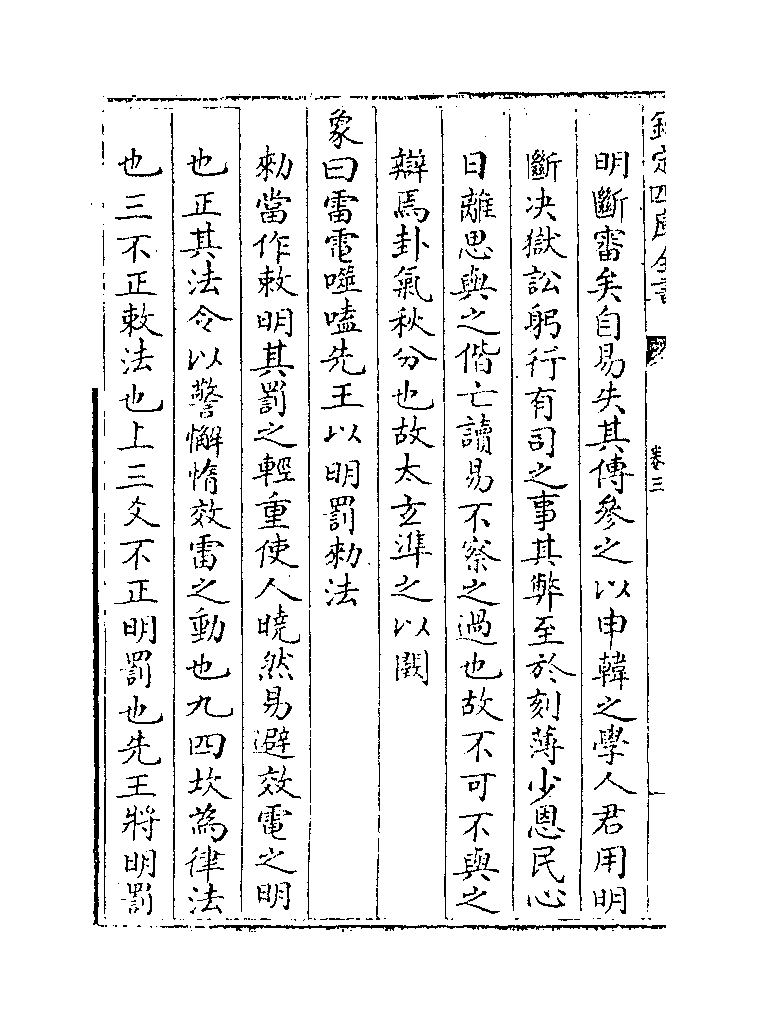 欽定四庫全書
卷三
明斷審矣自易失其傳參之以申韓之學人君用明
斷决獄訟躬行有司之事其弊至於刻薄少恩民心
日離思與之偕亡讀易不察之過也故不可不與之
辯焉卦氣秋分也故太玄準之以䦧
象曰雷電噬嗑先王以明罰勑法
勑當作敕明其罰之輕重使人曉然易避效電之明
也正其法令以警懈惰效雷之動也九四坎為律法
也三不正敕法也上三爻不正明罰也先王將明罰